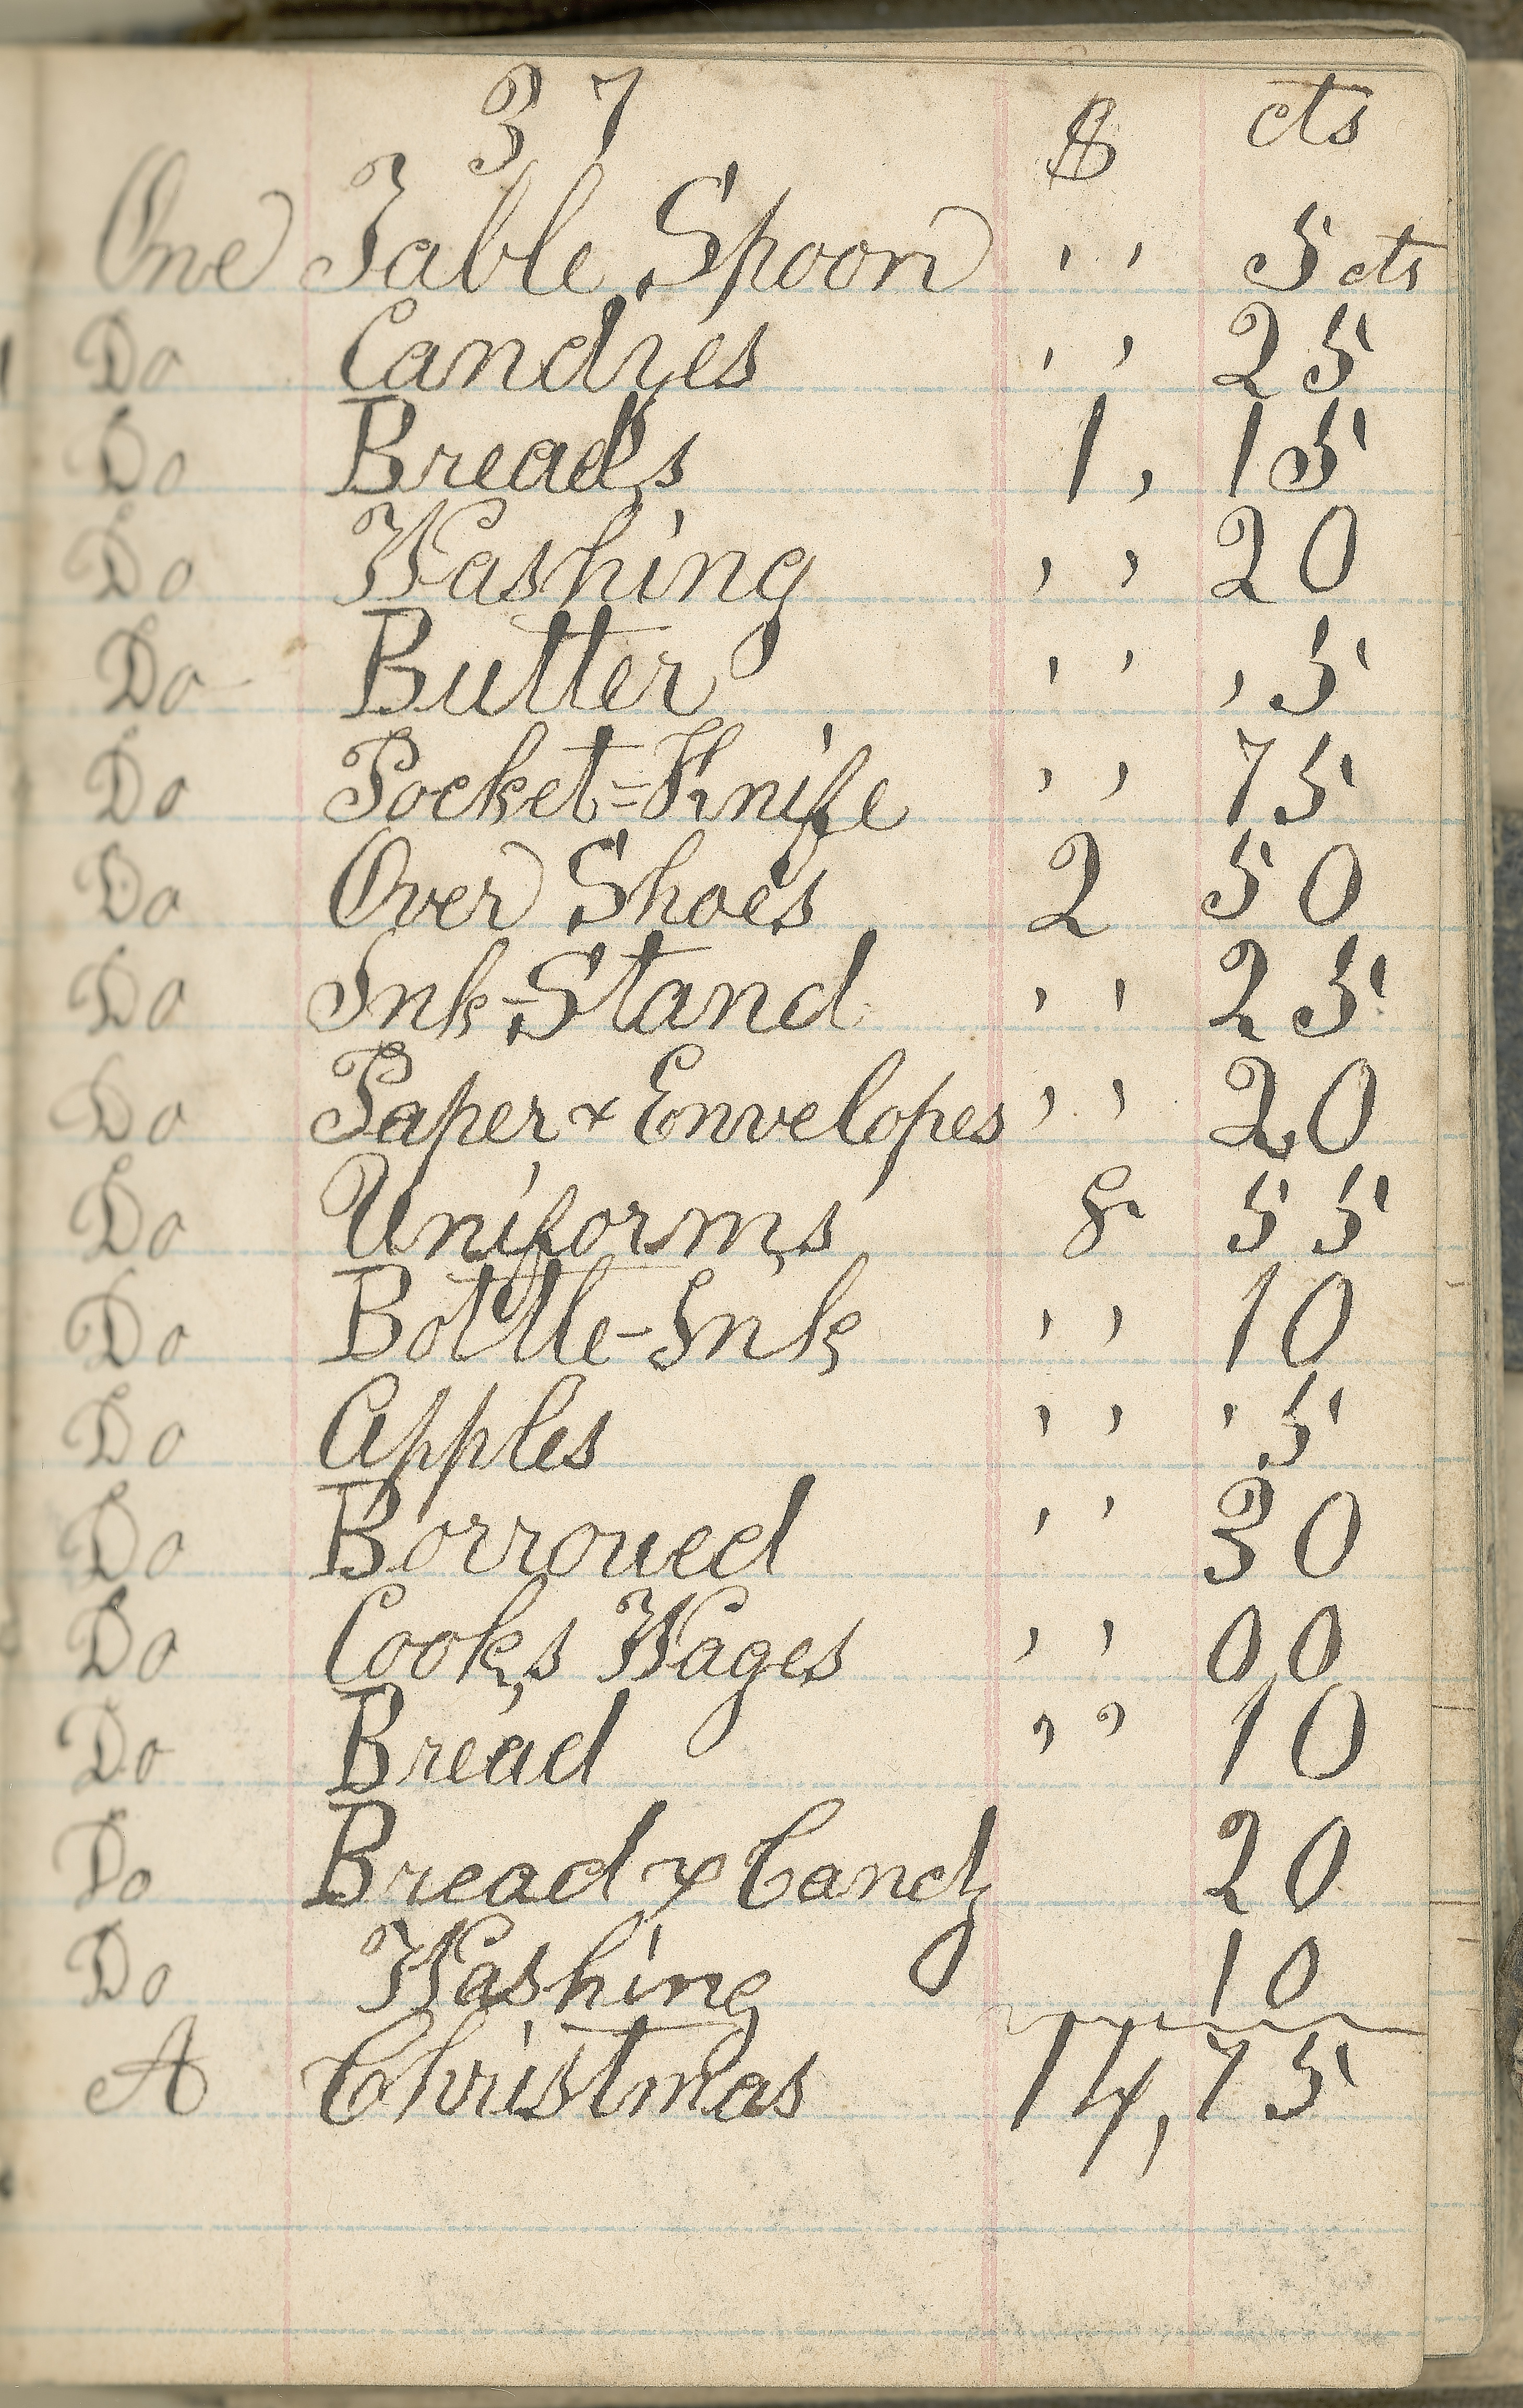 37 $ cts
One Table Spoon , , 5 cts
Do Candyes , , 25
Do Breads 1, 15
Do Washing , , 20
Do Butter , , , 5
Do Pocket=Knife , , 75
Do Over Shoes 2 50
Do Ink-Stand , , 25
Do Paper & Envelopes , , 20
Do Uniforms 8 55
Do Bottle-Ink , , 10
Do Apples , , , 5
Do Borroued , , 30
Do Cook,s Wages , , 00
Do Bread , , 10
Do Bread & Candy 20
Do Washing 10
A Christmas 14,75